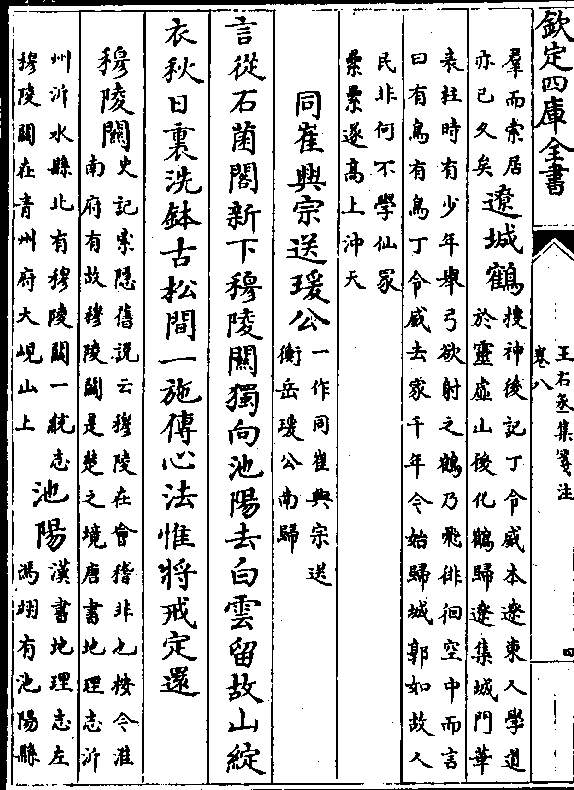 欽定四庫全書
王右丞集箋注
卷八
四
羣而索居
亦已久矣
遼城鶴
搜神後記丁令威本遼東人學道
於靈虛山後化鶴歸遼集城門華
表柱時有少年舉弓欲射之鶴乃飛徘徊空中而言
曰有鳥有鳥丁令威去家千年今始歸城郭如故人
民非何不學仙冢
纍纍遂高上沖天
同崔興宗送瑗公
一作同崔興宗送
衡岳瑗公南歸
言從石菌閣新下穆陵關獨向池陽去白雲留故山綻
衣秋日裏洗鉢古松間一施傳心法惟將戒定還
穆陵關
史記索隱舊說云穆陵在會稽非也按今淮
南府有故穆陵關是楚之境唐書地理志沂
州沂水縣北有穆陵關一統志
穆陵關在青州府大峴山上
池陽
漢書地理志左
馮翊有池陽縣